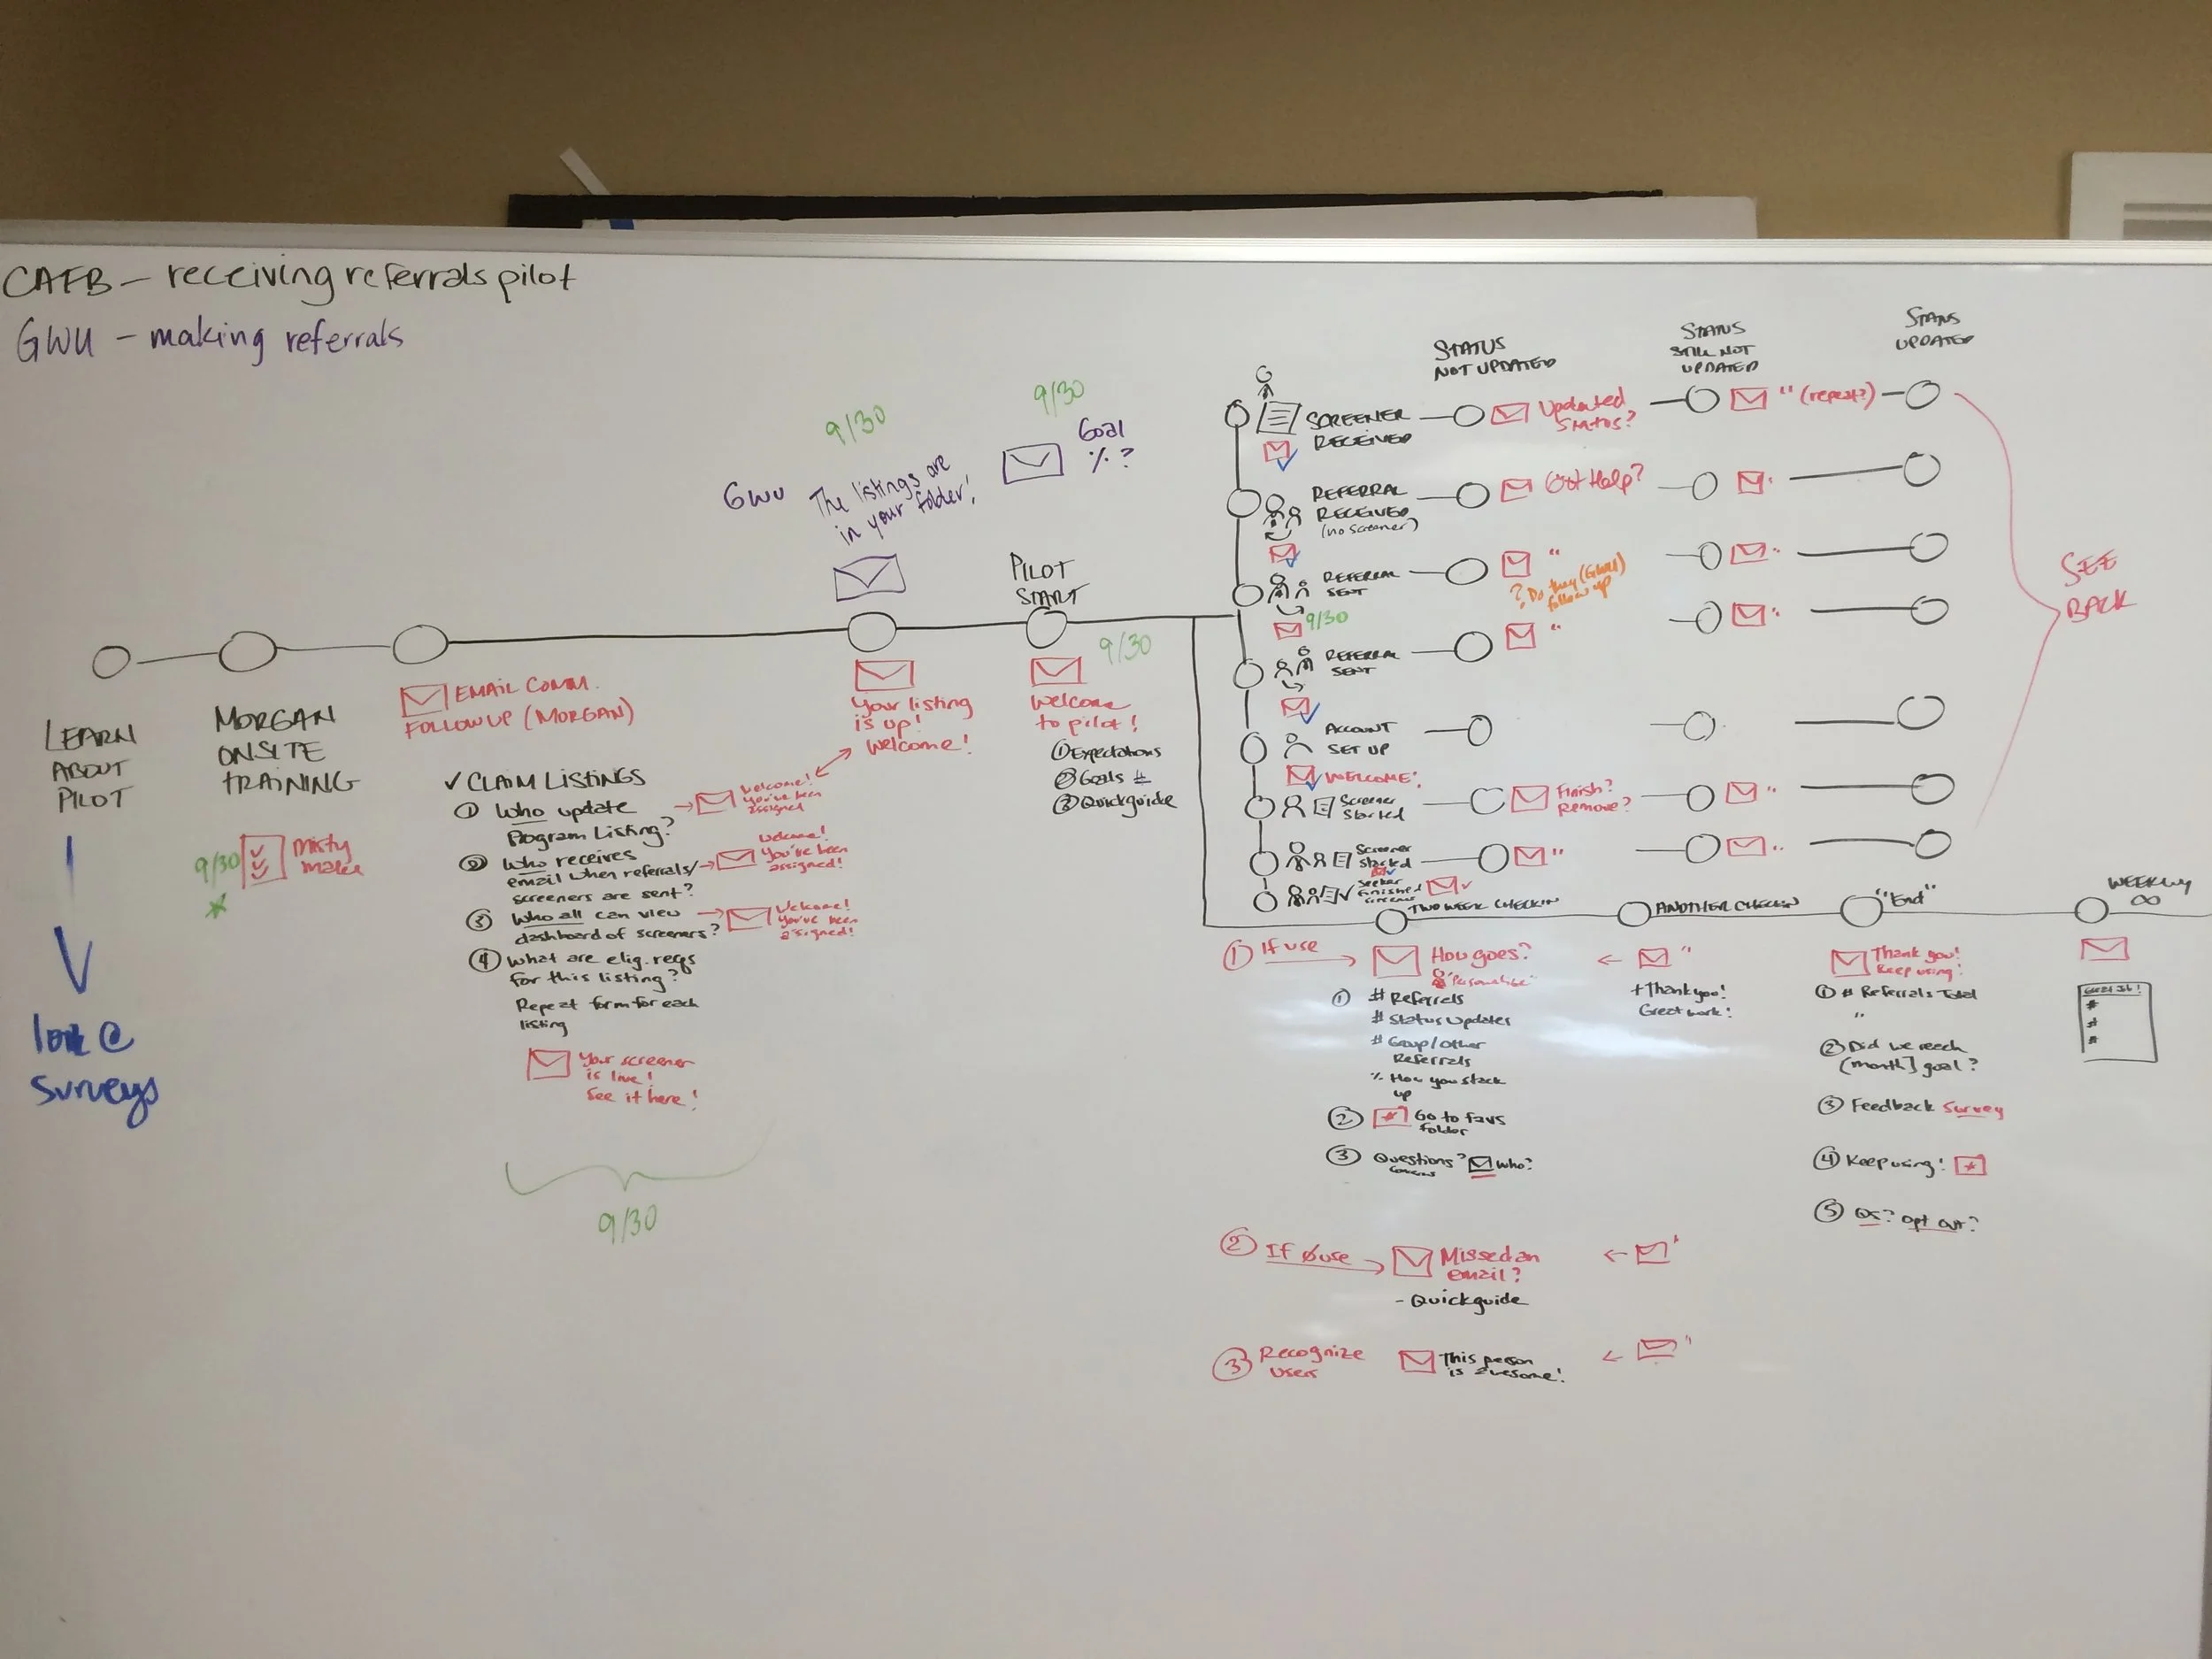 CAFB - receiving referrals pilot
GWU - making referrals
9/30
GWU
The listings are
in your folder!
9/30
Goal
% ?
PILOT
START
9/30
LEARN
ABOUT
PILOT
look @
surveys
MORGAN
ONSITE
TRAINING
9/30
Misty
EMAIL COMM.
FOLLOWUP (MORGAN)
✓ CLAIM LISTINGS
① Who update
Program Listing?
Welcome!
You've been
assigned
② Who receives
email when referrals/
screeners are sent?
Welcome!
You've been
assigned!
③ Who all can view
dashboard of screeners?
Welcome!
You've been
assigned!
④ What are elig. reqs
for this listing?
Repeat form for each
listing
Your screener
is live!
See it here!
9/30
Your listing
is up!
Welcome!
Welcome
to pilot!
① Expectations
② Goals #
③ Quickguide
STATUS
NOT UPDATED
STATUS
STILL NOT
UPDATED
STATUS
UPDATED
SCREENER
RECEIVED
Updated
status?
" (repeat?)
REFERRAL
RECEIVED
(no screener)
Got Help?
REFERRAL
SENT
"
? Do they (GWU)
follow up
9/30
REFERRAL
SENT
"
ACCOUNT
SET UP
WELCOME!
Screener
Started
Finish?
Remove?
"
Screener
Started
"
"
Seeker
Finished
SEE
BACK
TWO WEEK CHECKIN
ANOTHER CHECKIN
"End"
WEEKLY
∞
① If use
How goes?
"Personalize"
① # Referrals
# Status Updates
# Group/other
Referrals
% How you stack
up
② Go to favs
folder
③ Questions?
concerns
Who?
"
+ Thank you!
Great work!
Thank you!
Keep using!
① # Referrals Total
"
② Did we reach
[month] goal?
③ Feedback Survey
④ Keep using!
⑤ Qs? Opt out?
② If Ø use
Missed an
email?
- Quickguide
③ Recognize
users
This person
is awesome!
"